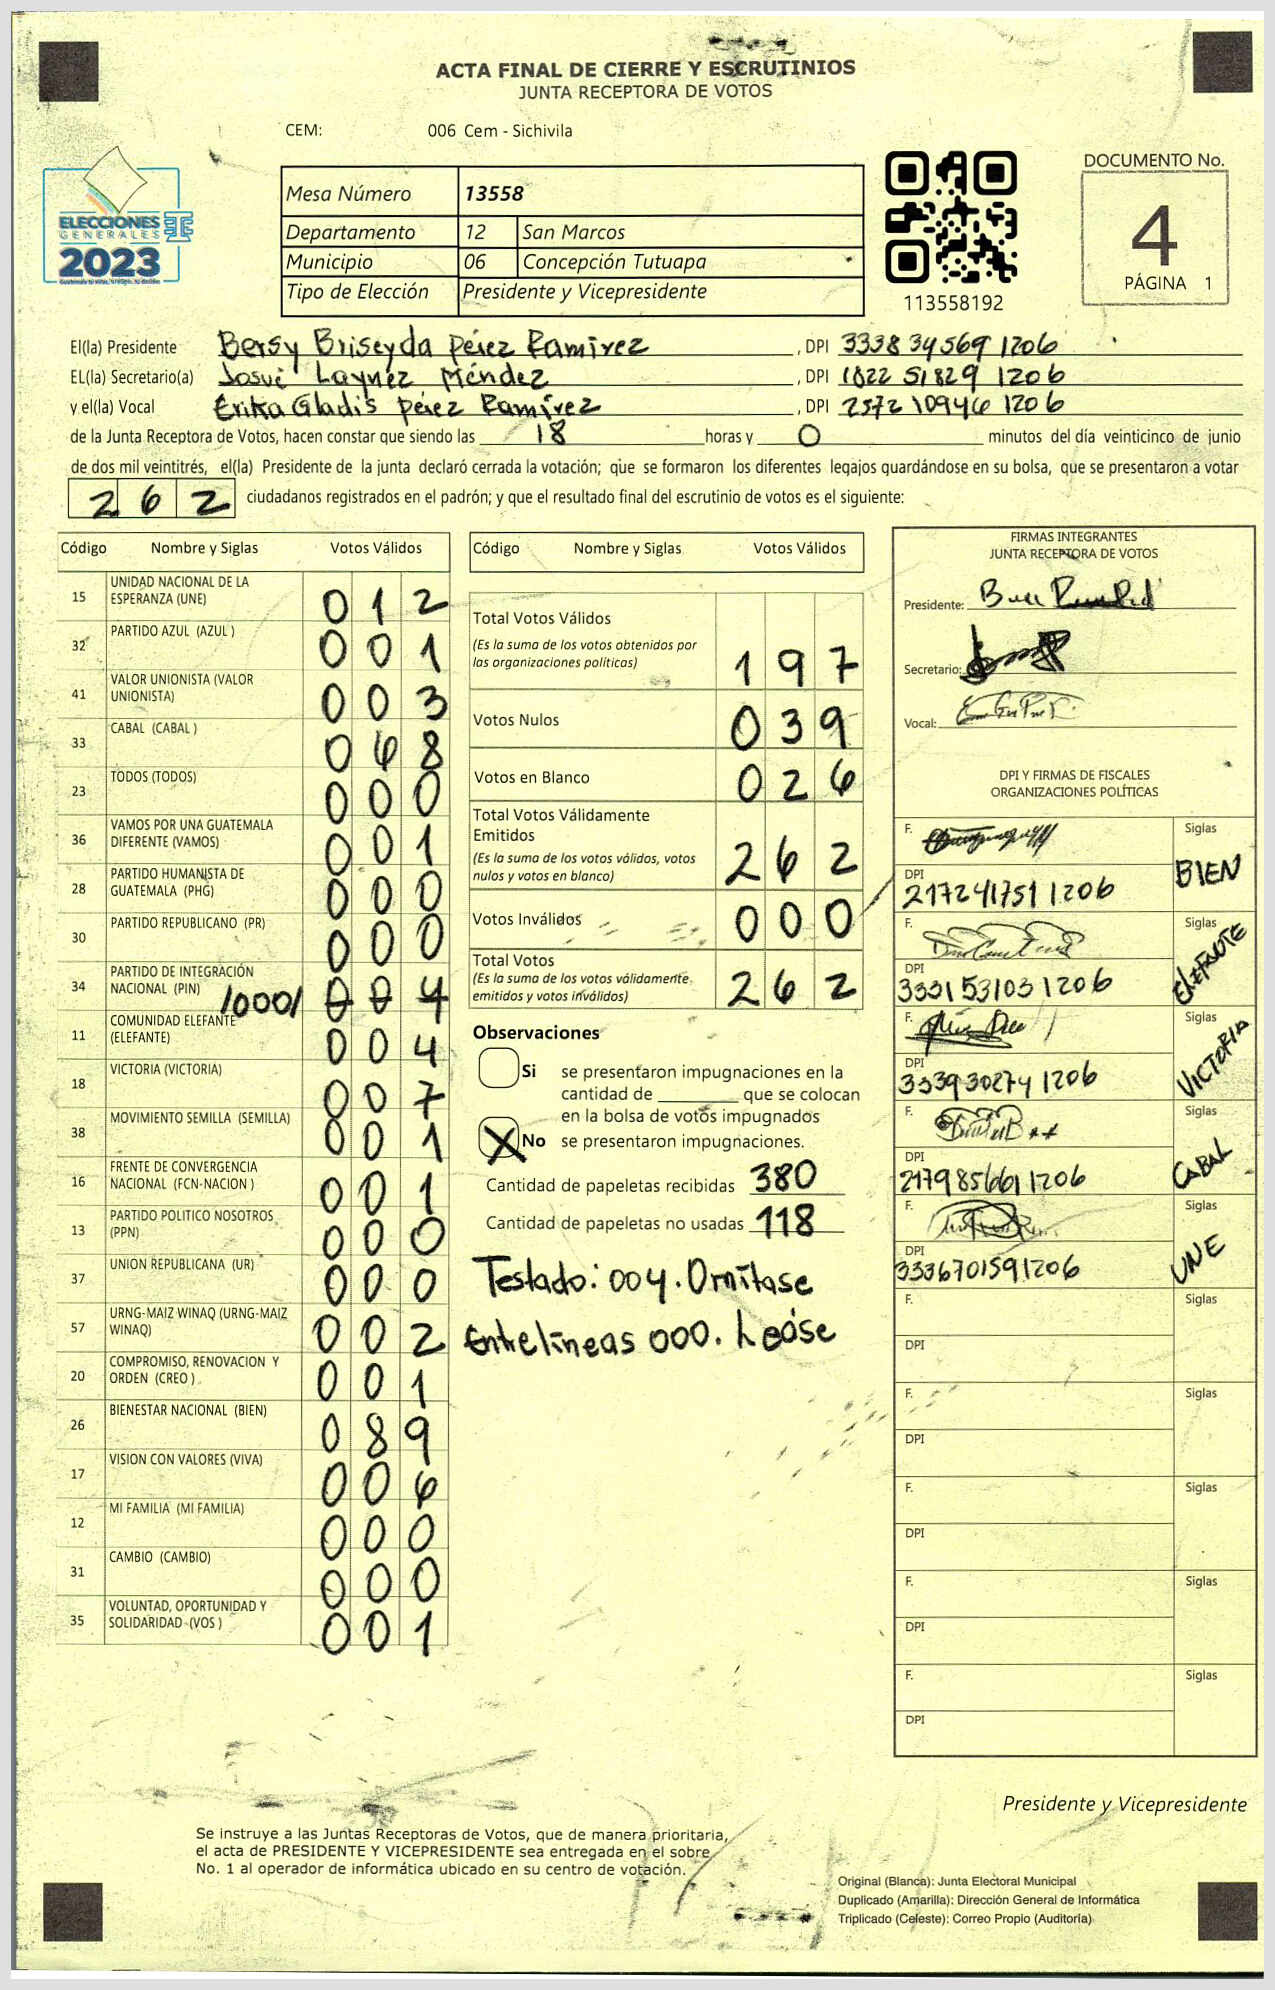 ACTA FINAL DE CIERRE Y ESCRUTINIOS
JUNTA RECEPTORA DE VOTOS
CEM: 006 Cem - Sichivila
ELECCIONES
GENERALES
2023
Mesa Número 13558
Departamento 12 San Marcos
Municipio 06 Concepción Tutuapa
Tipo de Elección Presidente y Vicepresidente
113558192
DOCUMENTO No.
4
PÁGINA 1
El(la) Presidente Bersy Briseyda Pérez Ramirez, DPI 333834569 1206
EL(la) Secretario(a) Josué Laynez Méndez, DPI 1822 51829 1206
y el(la) Vocal Erika Gladis Pérez Ramírez, DPI 2572 10946 1206
de la Junta Receptora de Votos, hacen constar que siendo las 18 horas y 0 minutos del día veinticinco de junio
de dos mil veintitrés, el(la) Presidente de la junta declaró cerrada la votación; que se formaron los diferentes legajos guardándose en su bolsa, que se presentaron a votar
262 ciudadanos registrados en el padrón; y que el resultado final del escrutinio de votos es el siguiente:
Código Nombre y Siglas Votos Válidos
15 UNIDAD NACIONAL DE LA ESPERANZA (UNE) 012
32 PARTIDO AZUL (AZUL ) 001
41 VALOR UNIONISTA (VALOR UNIONISTA) 003
33 CABAL (CABAL ) 068
23 TODOS (TODOS) 000
36 VAMOS POR UNA GUATEMALA DIFERENTE (VAMOS) 001
28 PARTIDO HUMANISTA DE GUATEMALA (PHG) 000
30 PARTIDO REPUBLICANO (PR) 000
34 PARTIDO DE INTEGRACIÓN NACIONAL (PIN) /000/ 004
11 COMUNIDAD ELEFANTE (ELEFANTE) 004
18 VICTORIA (VICTORIA) 007
38 MOVIMIENTO SEMILLA (SEMILLA) 001
16 FRENTE DE CONVERGENCIA NACIONAL (FCN-NACION ) 001
13 PARTIDO POLITICO NOSOTROS (PPN) 000
37 UNION REPUBLICANA (UR) 000
57 URNG-MAIZ WINAQ (URNG-MAIZ WINAQ) 002
20 COMPROMISO, RENOVACION Y ORDEN (CREO ) 001
26 BIENESTAR NACIONAL (BIEN) 089
17 VISION CON VALORES (VIVA) 006
12 MI FAMILIA (MI FAMILIA) 000
31 CAMBIO (CAMBIO) 000
35 VOLUNTAD, OPORTUNIDAD Y SOLIDARIDAD (VOS ) 001
Código Nombre y Siglas Votos Válidos
Total Votos Válidos
(Es la suma de los votos obtenidos por
las organizaciones políticas) 197
Votos Nulos 039
Votos en Blanco 026
Total Votos Válidamente
Emitidos
(Es la suma de los votos válidos, votos
nulos y votos en blanco) 262
Votos Inválidos 000
Total Votos
(Es la suma de los votos válidamente
emitidos y votos inválidos) 262
Observaciones
Si se presentaron impugnaciones en la
cantidad de ________ que se colocan
en la bolsa de votos impugnados
X No se presentaron impugnaciones.
Cantidad de papeletas recibidas 380
Cantidad de papeletas no usadas 118
Testado: 004. Omitase
Entrelíneas 000. Leáse
FIRMAS INTEGRANTES
JUNTA RECEPTORA DE VOTOS
Presidente:
Secretario:
Vocal:
DPI Y FIRMAS DE FISCALES
ORGANIZACIONES POLÍTICAS
F. Siglas BIEN
DPI 217241751 1206
F. Siglas ELEFANTE
DPI 333153103 1206
F. Siglas VICTORIA
DPI 333930274 1206
F. Siglas CABAL
DPI 217985661 1206
F. Siglas UNE
DPI 333670159 1206
F. Siglas
DPI
F. Siglas
DPI
F. Siglas
DPI
F. Siglas
DPI
F. Siglas
DPI
Presidente y Vicepresidente
Se instruye a las Juntas Receptoras de Votos, que de manera prioritaria,
el acta de PRESIDENTE Y VICEPRESIDENTE sea entregada en el sobre
No. 1 al operador de informática ubicado en su centro de votación.
Original (Blanca): Junta Electoral Municipal
Duplicado (Amarilla): Dirección General de Informática
Triplicado (Celeste): Correo Propio (Auditoría)